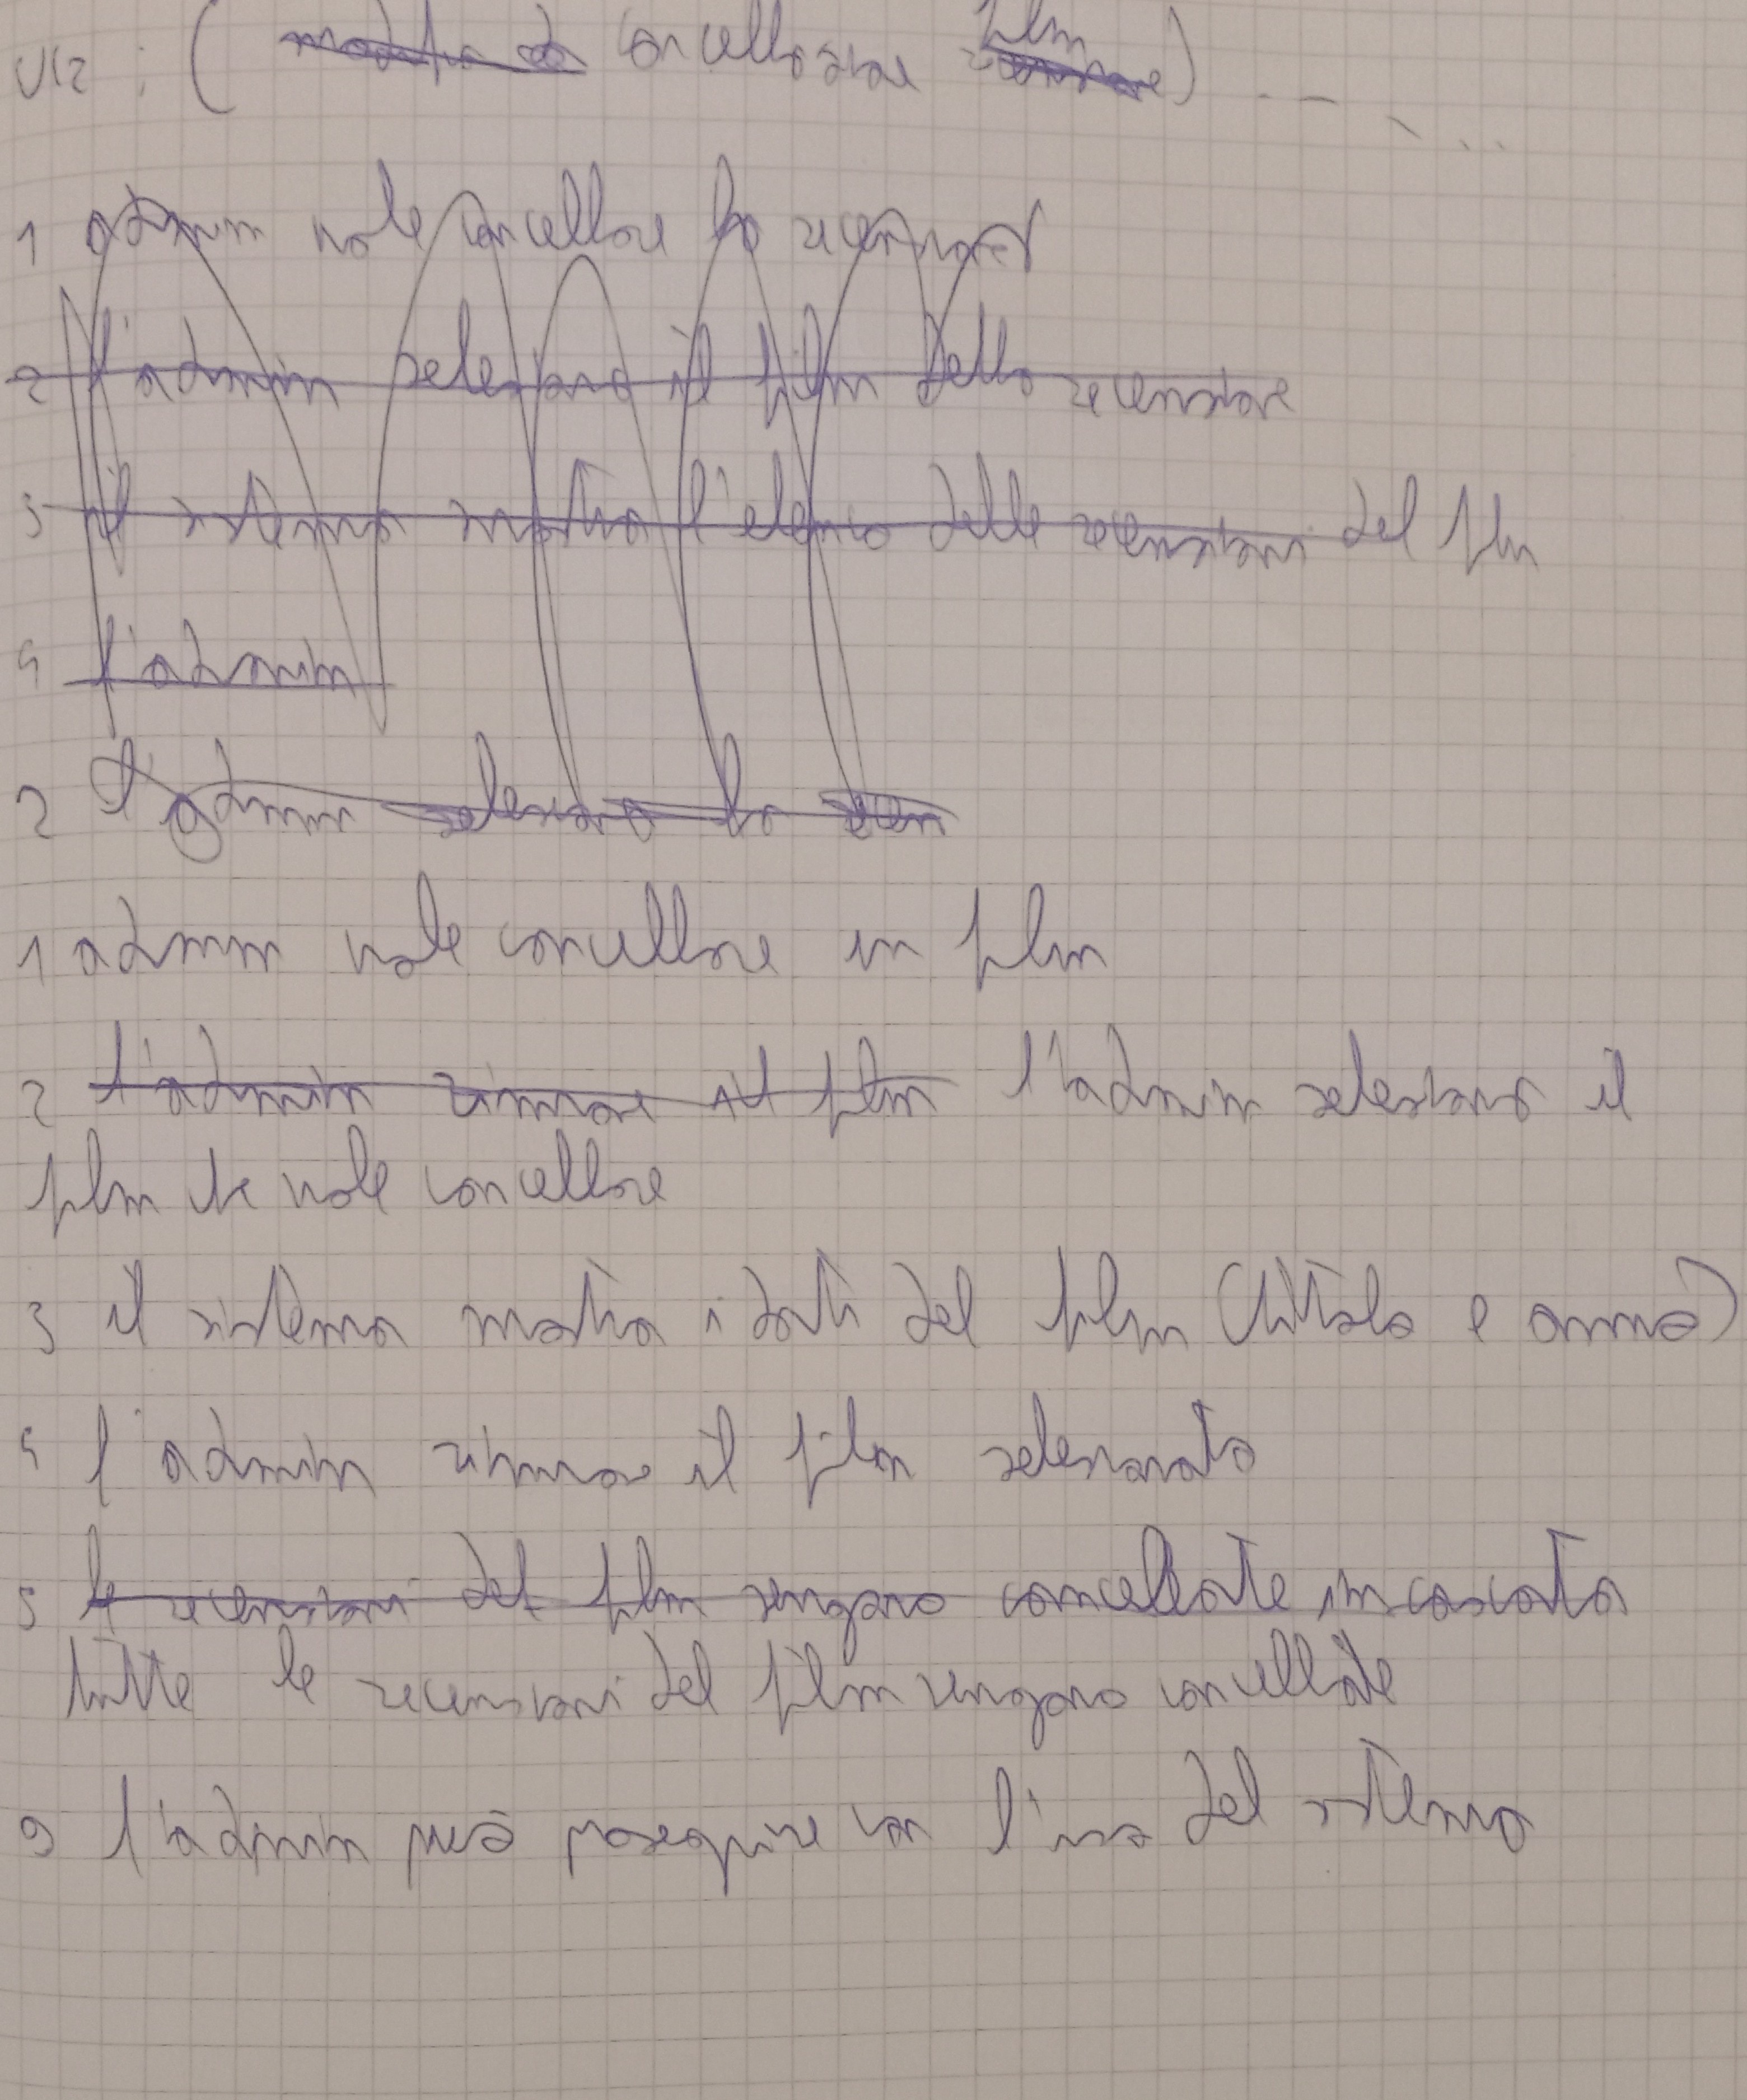 UC2 : ( modifica da cancellazione film recensione ) - - - ...
1 admin vuole cancellare la recensione
2 l'admin seleziona il film della recensione
3 il sistema mostra l'elenco delle recensioni del film
4 l'admin
2 l'admin seleziona la recen
1 admin vuole cancellare un film
2 l'admin rimuove il film l'admin seleziona il
film che vuole cancellare
3 il sistema mostra i dati del film (titolo e anno)
4 l'admin rimuove il film selezionato
5 le recensioni del film vengono cancellate in cascata
tutte le recensioni del film vengono cancellate
9 l'admin può proseguire con l'uso del sistema